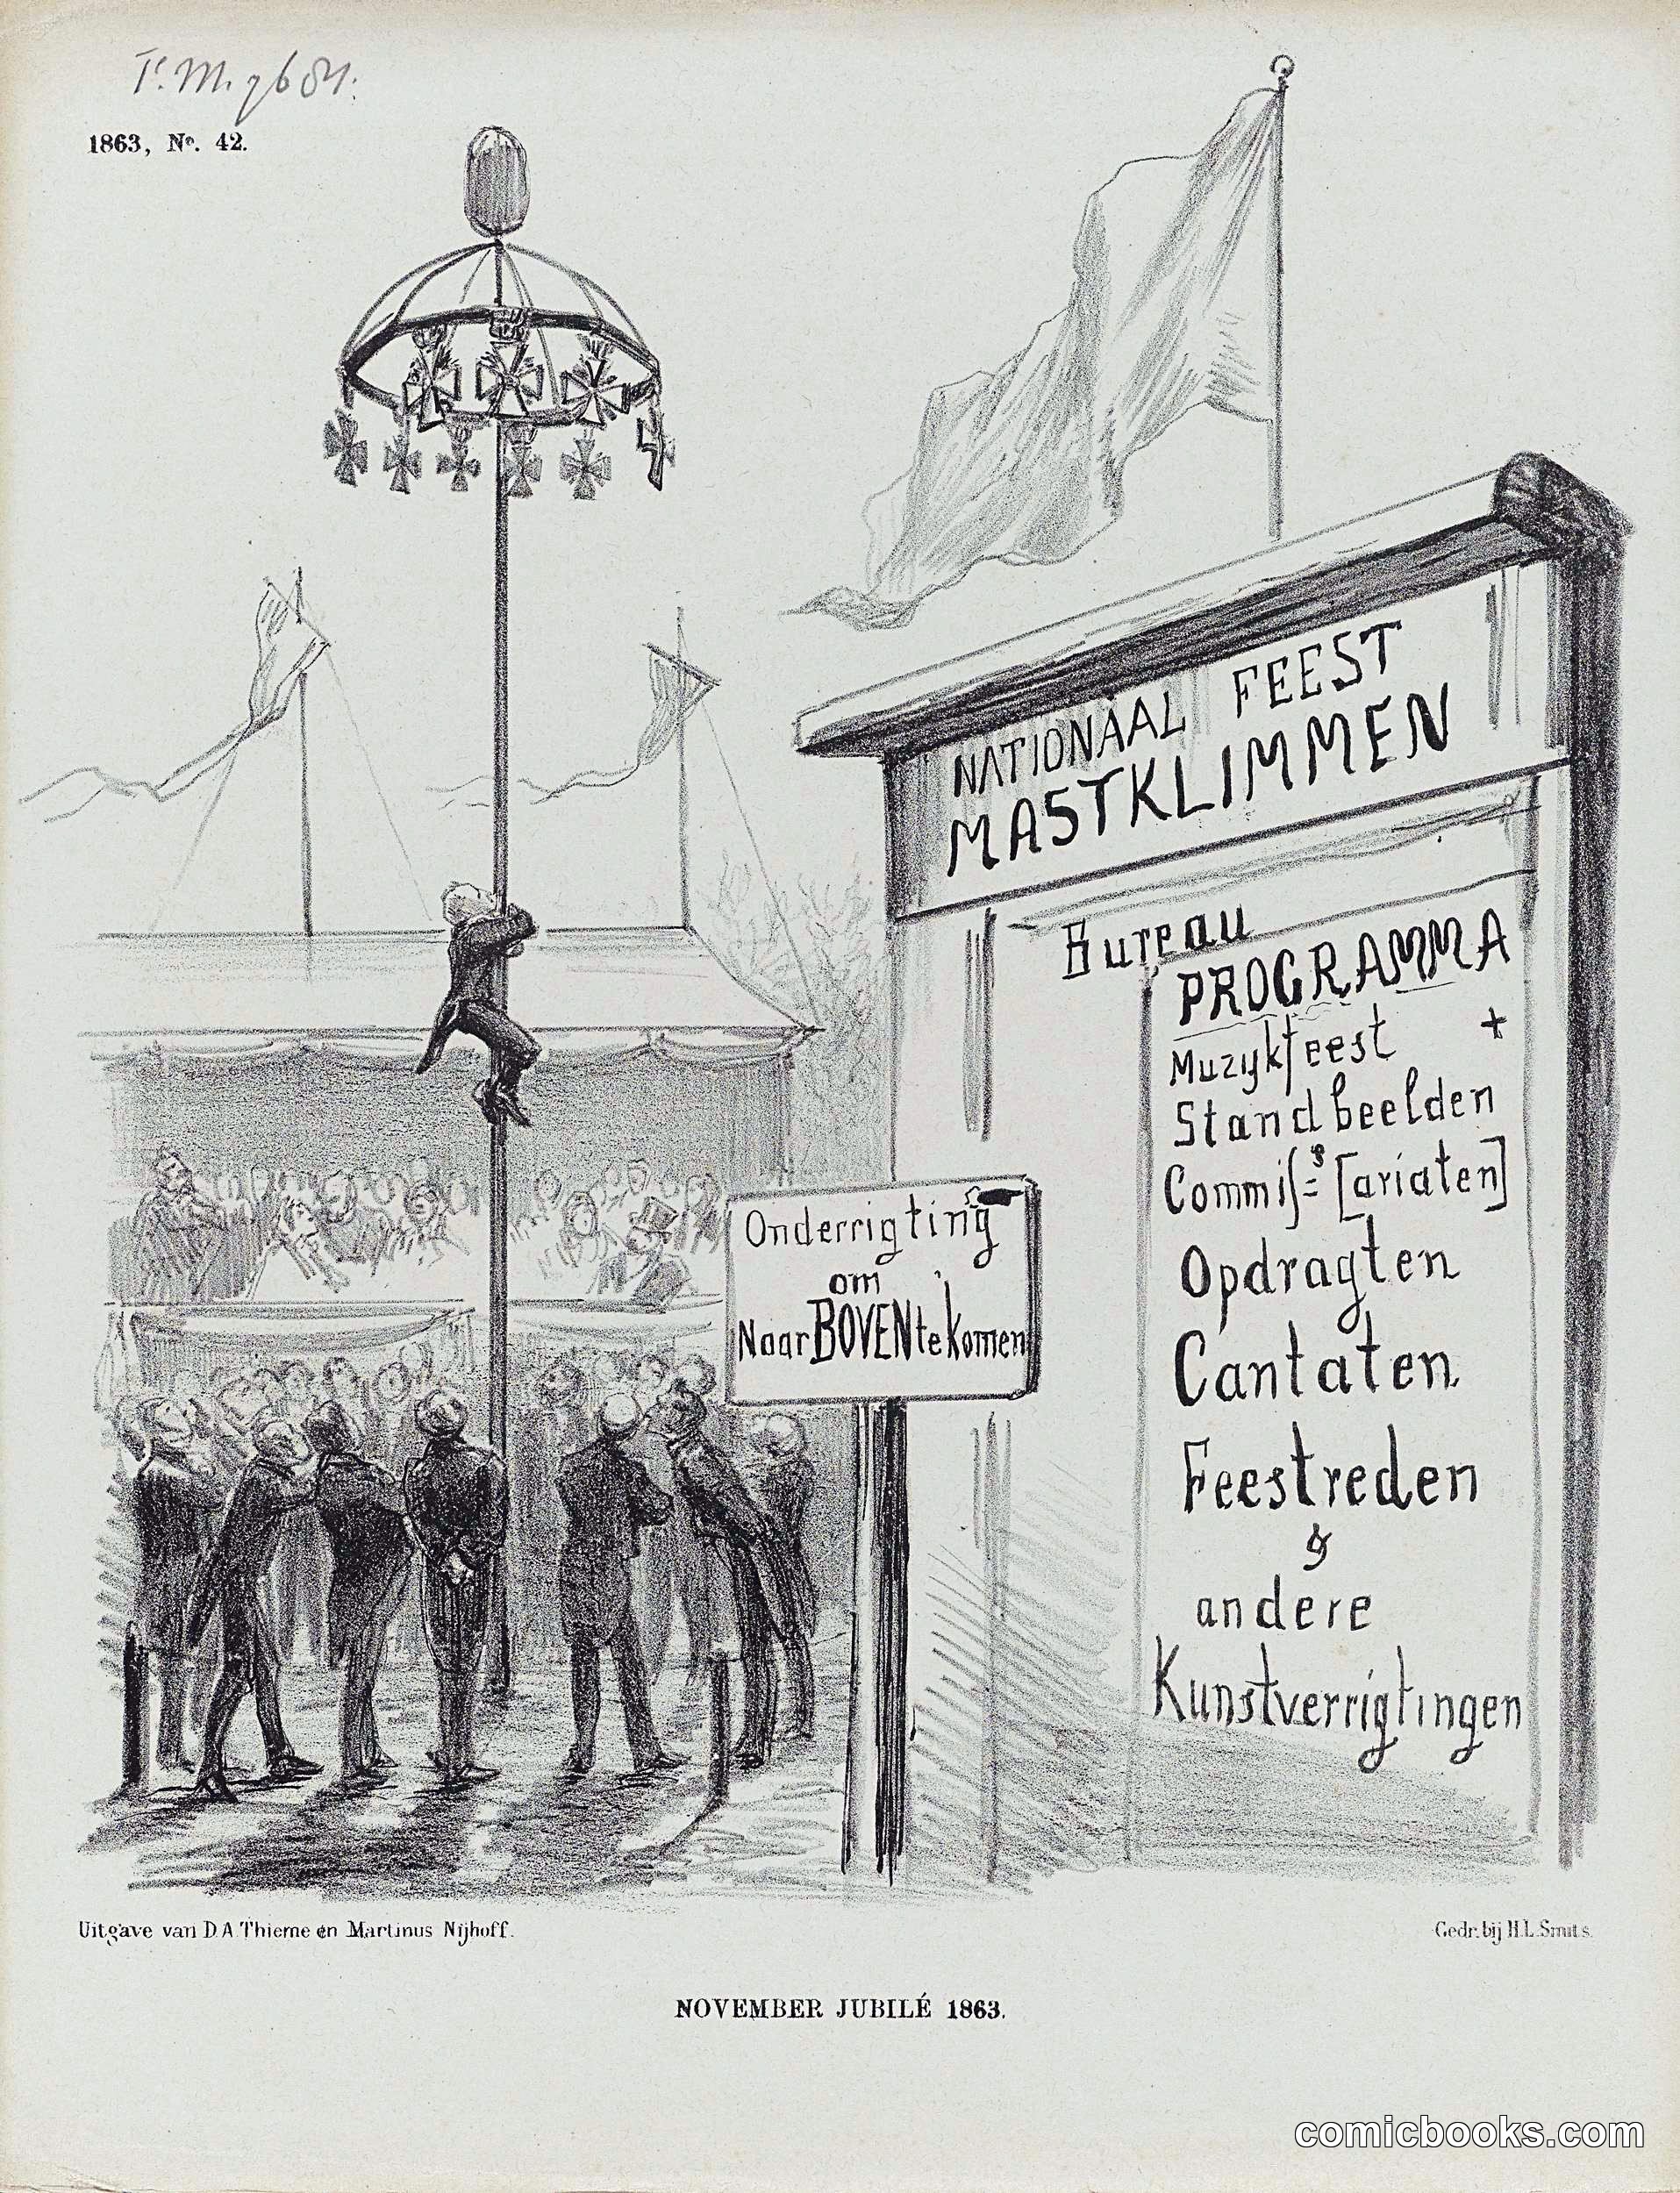 1863, No. 42.
NATIONAAL FEEST
MASTKLIMMEN
Bureau
PROGRAMMA
Muzykfeest +
Standbeelden
Commiſs = [ariaten]
Opdragten
Cantaten.
Feestreden
&
andere
Kunstverrigtingen
Onderrigting
om
Naar BOVEN te komen
Uitgave van D.A. Thieme en Martinus Nijhoff.
Gedr. bij H.L. Smits.
NOVEMBER JUBILÉ 1863.
comicbooks.com